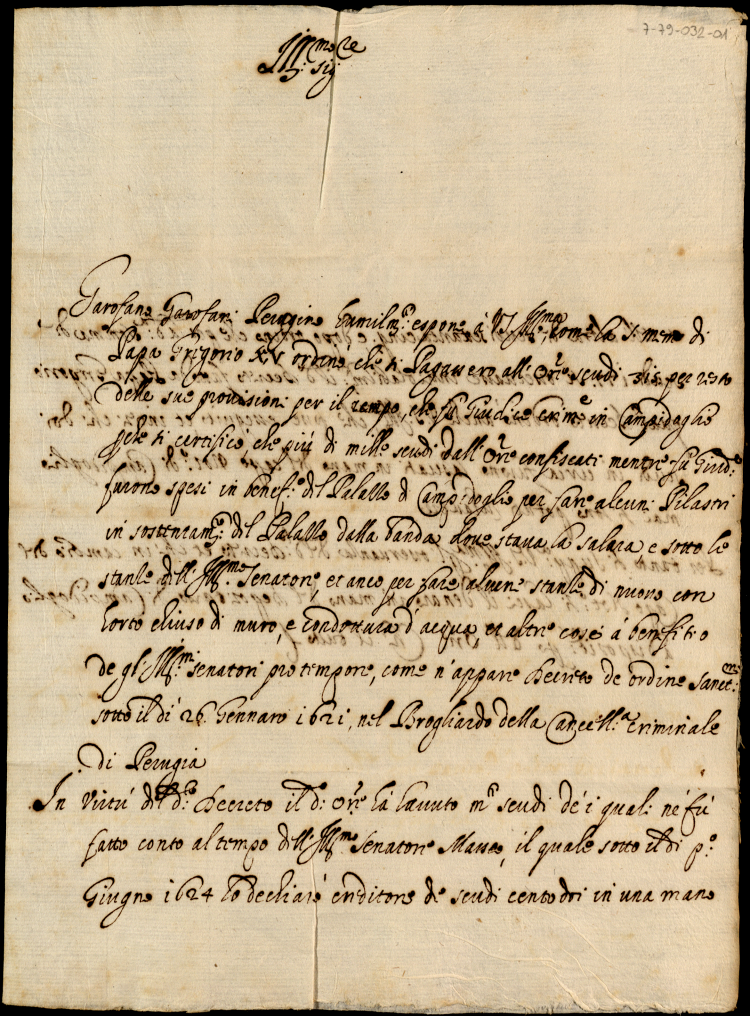 7-79-032-01
Ill:mo sig:re
Garofano Garofani Perugino humilm:te espone à V.S. Ill:ma, come la S. mem: di
Papa Grigorio XV ordinò che si Pagassero all'Or:re scudi 315 per resto
delle sue provisioni per il tempo, che fù Giudice Crim:e in Campidoglio
perche si certificò, che più di mille scudi dall'Or:re confiscati mentre fù Giud:e
furono spesi in benef:o del Palazzo di Campidoglio per fare alcuni Pilastri
in sostentam:to del Palazzo dalla banda dove stava la salara e sotto le
stanze dell'Ill:mo Senatore, et anco per fare alcune stanze di nuovo con
horto chiuso di muro, e condottura d'acqua, et altre cose à benefitio
de gl'Ill:mi senatori pro tempore, come n'appare Decreto de ordine Sanct:mi
sotto il dì 26 Gennaro 1621, nel Brogliardo della Cancell:a Criminale
di Perugia
In virtù del d:o Decreto il d:o Or:re hà havuto m:ti scudi de i quali ne fù
fatto conto al tempo dell'Ill:mo Senatore Masseo, il quale sotto il dì p:o
Giugno 1624 lo dechiarò creditore de scudi cento doi in una mano